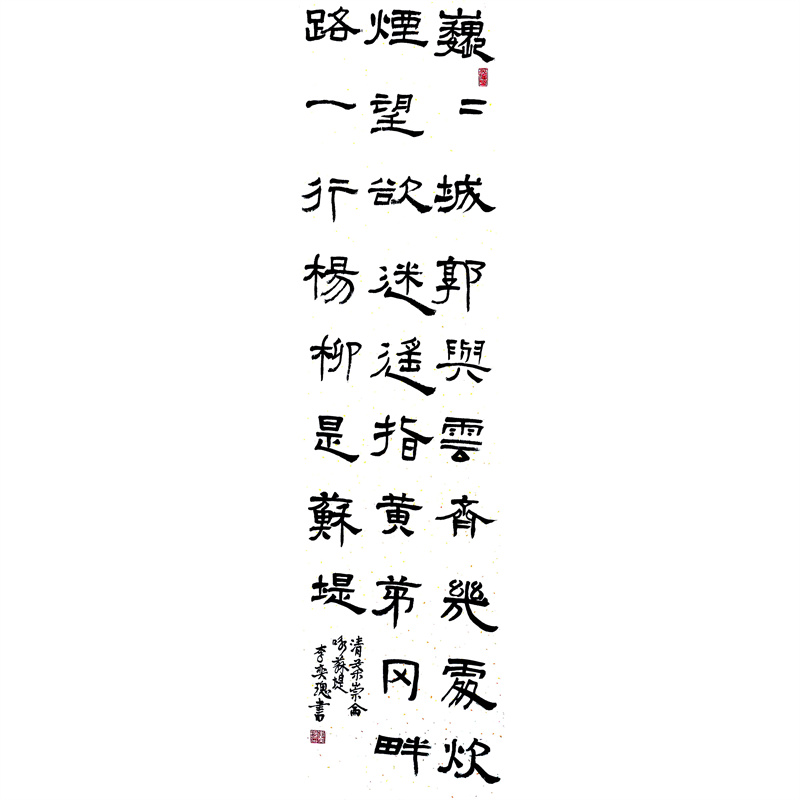 巍〻城郭與雲齊幾處炊
煙望欲迷遙指黄茅冈畔
路一行楊柳是蘇堤
清宋崇侖
咏蘇堤
李奕瑰書